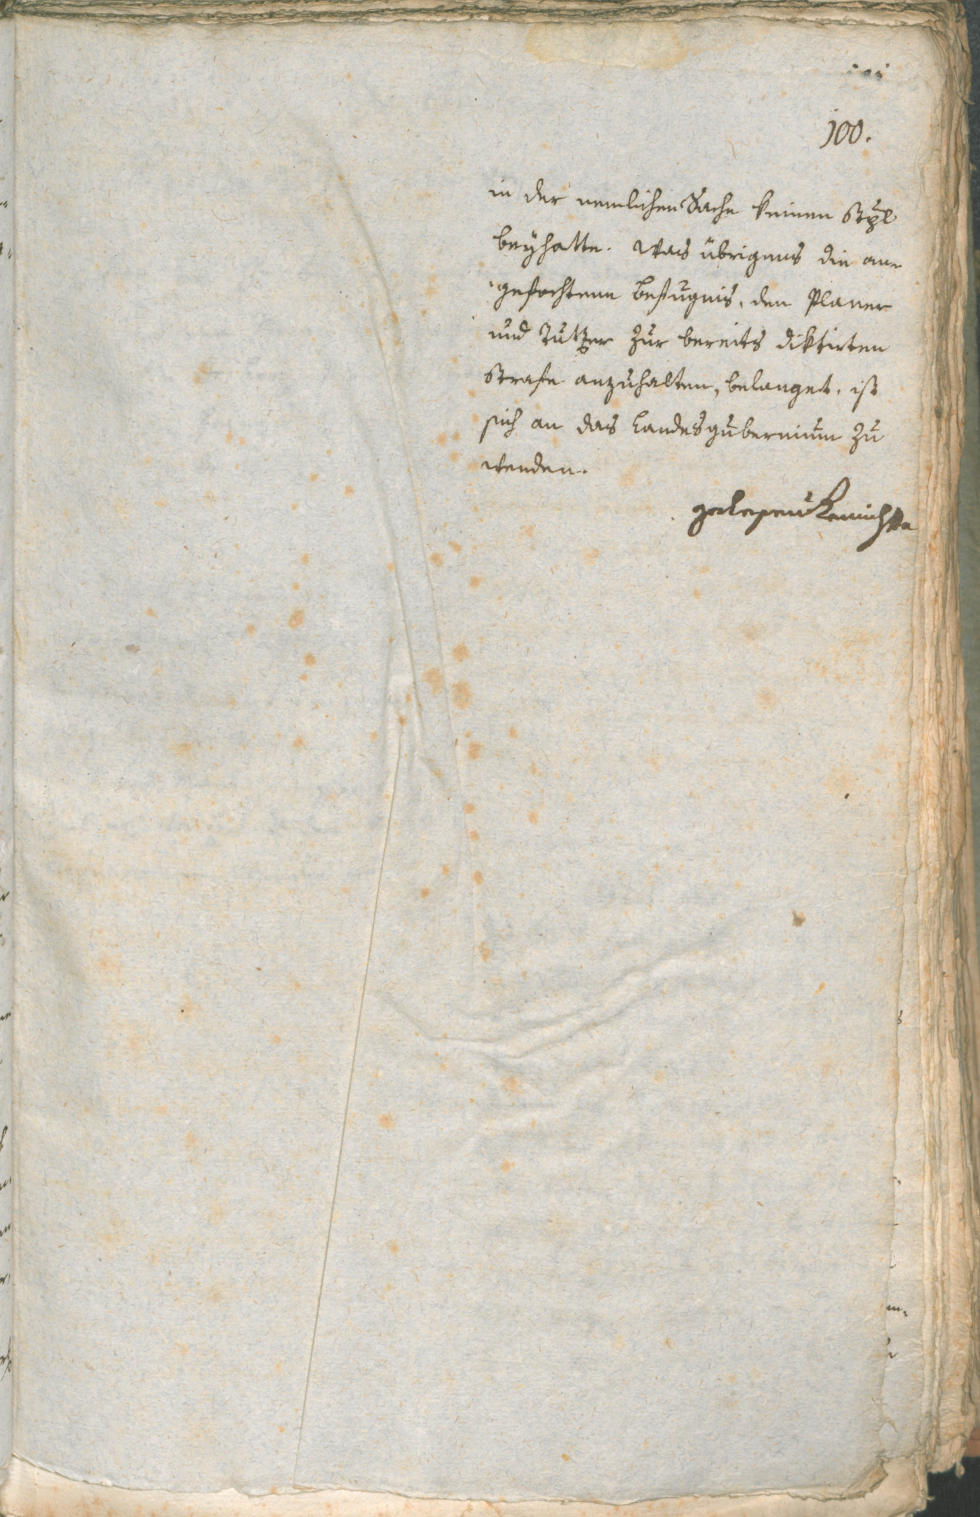 100.
in der nemlichen Sache keinen Styl
beyhatte. Was übrigens die an-
gefochtene Befugnis, den Planer
und Jutzer zur bereits diktirten
Strafe anzuhalten, belanget, ist
sich an das Landesgubernium zu
wenden.